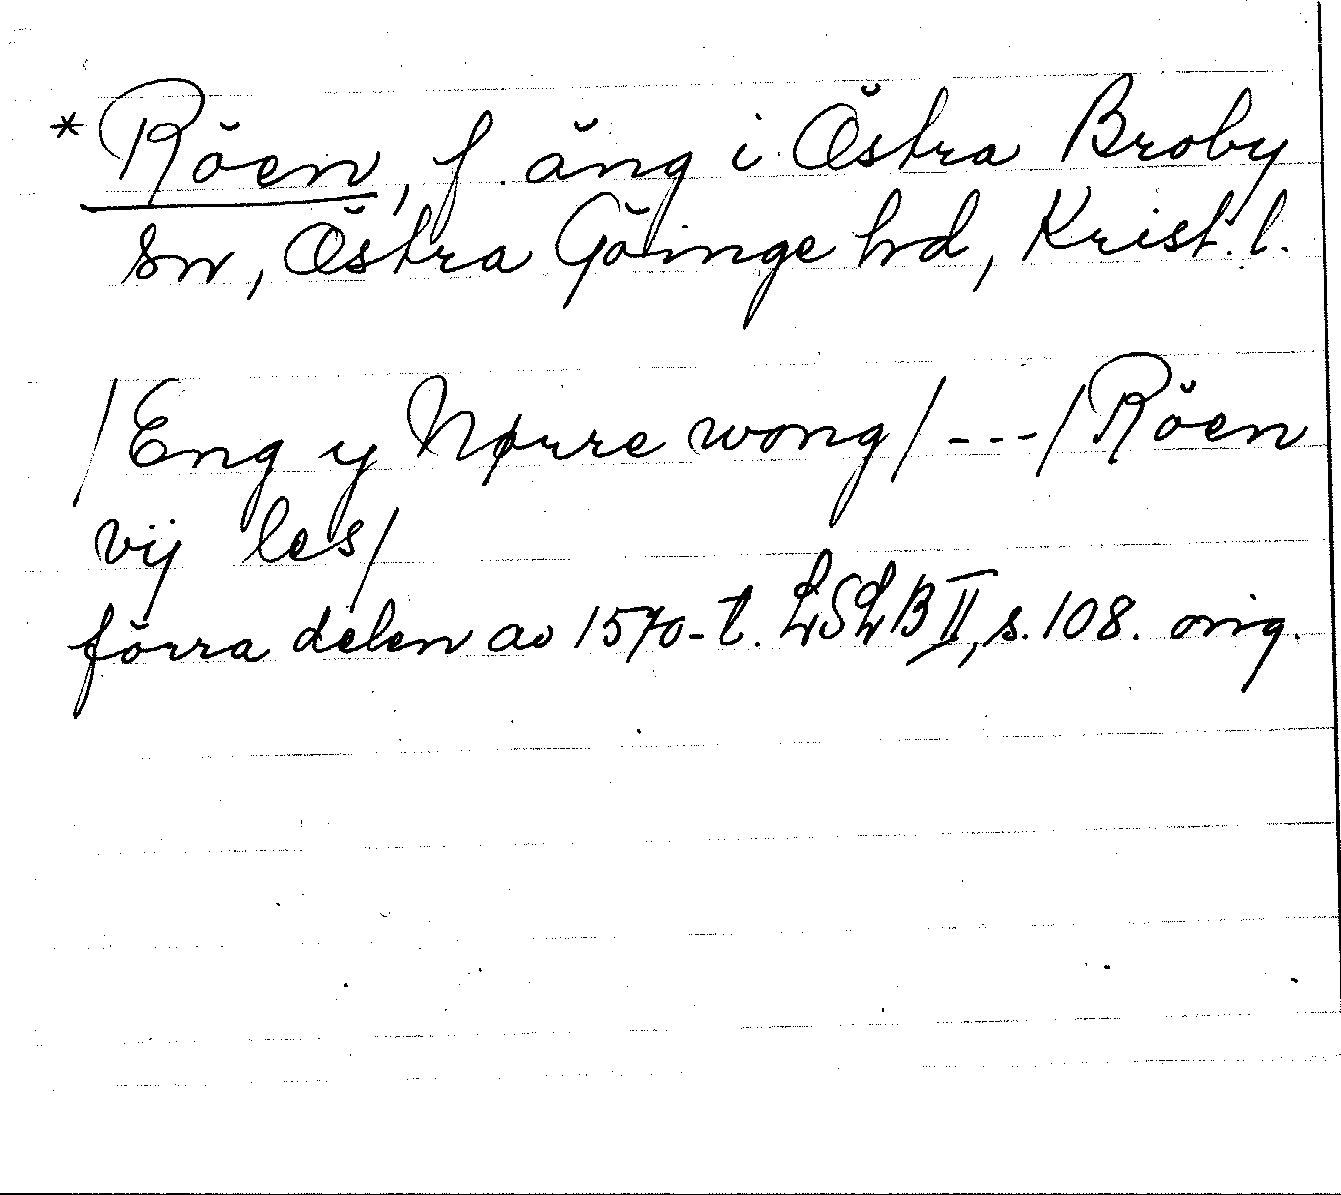 * Röen, f. äng i Östra Broby
sn, Östra Göinge hd, Krist. l.
/Eng y Nørre wong/ ---/Röen
vij les/
förra delen av 1570-t. LSLB II, s. 108. orig.